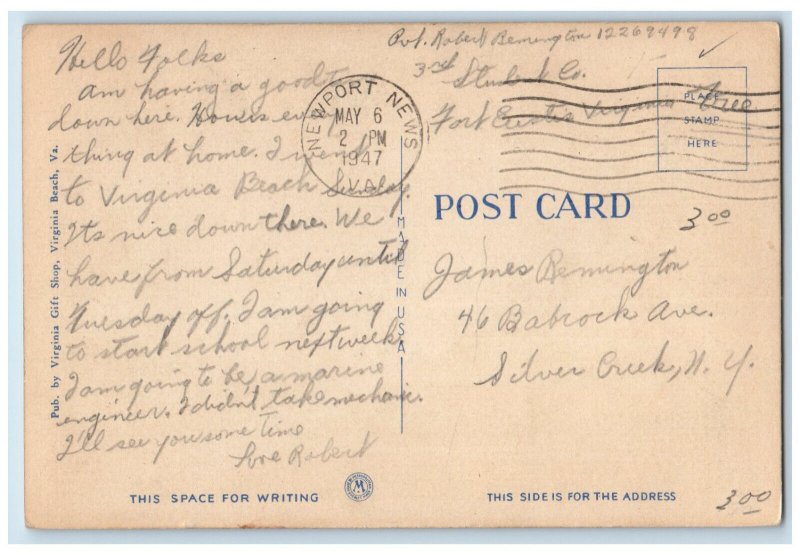 Hello Folks
am having a good
down here. Hows every
thing at home. I went
to Virginia Beach Sunday.
Its nice down there. We
have from Saturday until
Tuesday off. I am going
to start school next week.
I am going to be a marine
engineer. I didn't take mechanic.
I'll see you some time
Love Robert
Pub. by Virginia Gift Shop, Virginia Beach, Va.
THIS SPACE FOR WRITING
NEWPORT NEWS
MAY 6
2 PM
1947
VA.
MADE IN USA
Pvt. Robert Bemington 12269498
3rd Student Co.
Fort Eustis Virginia Free
PLACE
STAMP
HERE
POST CARD
3.00
James Bemington
46 Babcock Ave.
Silver Creek, N. Y.
THIS SIDE IS FOR THE ADDRESS
3.00